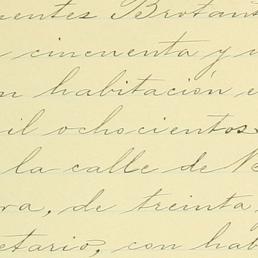 entes Brotan
cincuenta y u
n habitación e
il ochocientos
la calle de
ra, de treinta
etario, con hab